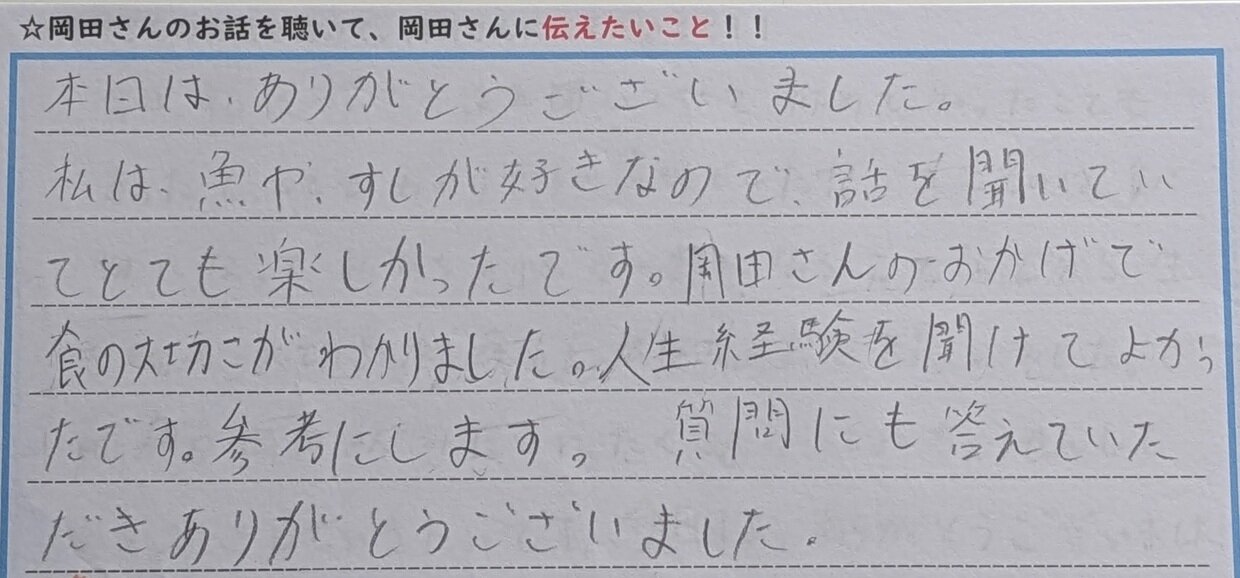 ☆岡田さんのお話を聴いて、岡田さんに伝えたいこと！！
本日は、ありがとうございました。
私は、魚や、すしが好きなので、話を聞いてい
てとても楽しかったです。岡田さんのおかげで
食の大切さがわかりました。人生経験を聞けてよかっ
たです。参考にします。質問にも答えていた
だきありがとうございました。